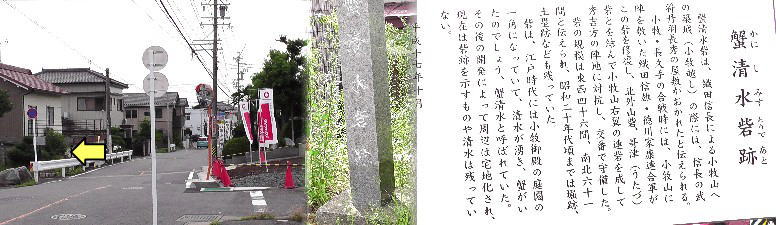 蟹清水砦跡
かに し みず とりで あと
蟹清水砦は、織田信長による小牧山へ
の築城(小牧越し)の際には、信長の武
将丹羽長秀の屋敷がおかれたと伝えられる。
小牧・長久手の合戦時には、小牧山に
陣を敷いた織田信雄・徳川家康連合軍が
この砦を修復し、北外山砦、宇津(うたづ)
砦とを結んで小牧山右翼の連砦を成して
秀吉方の陣地に対抗し、交番で守備した。
砦の規模は東西四十六間、南北六十一
間と伝えられ、昭和二十年代頃までは堀跡、
土塁跡なども残っていた。
砦は、江戸時代には小牧御殿の庭園の
一角になっていて、清水が湧き、蟹がい
たのでしょう、蟹清水と呼ばれていた。
その後の開発によって周辺は宅地化され、
現在は砦跡を示すものや清水は残ってい
ない。